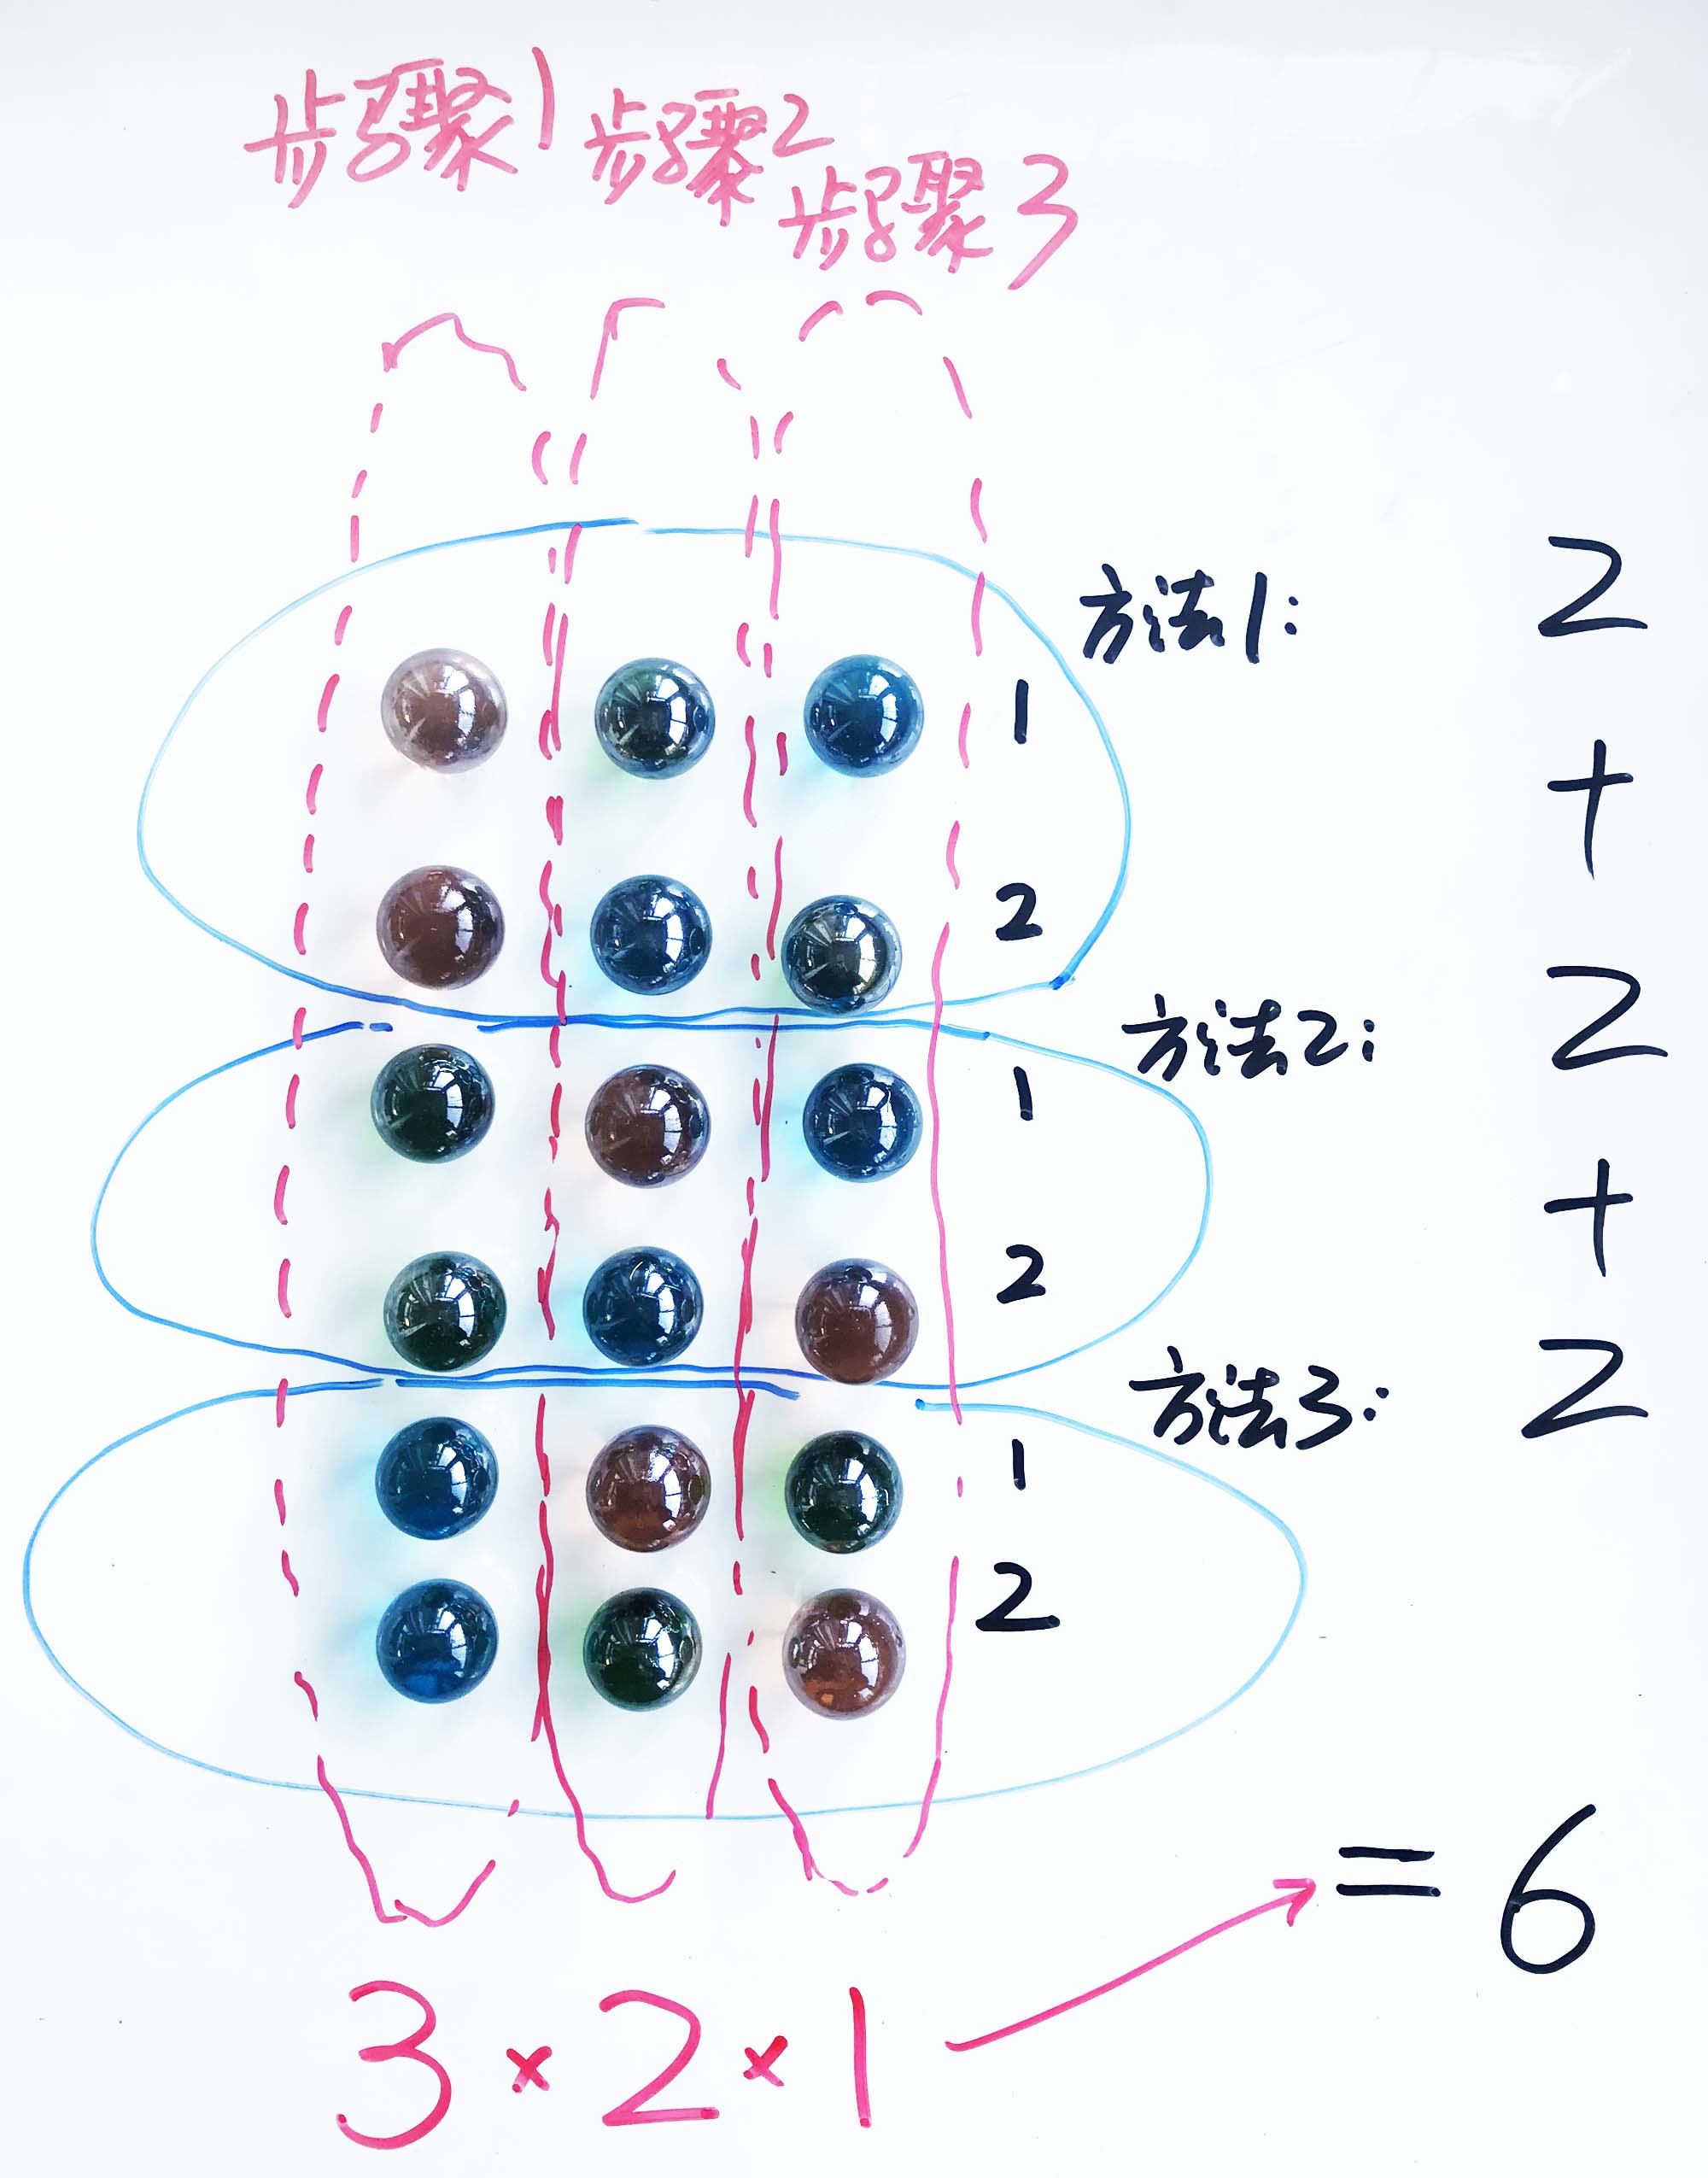 步骤1 步骤2
步骤3
方法1: 2
1
+
2
方法2: 2
1
+
2
方法3: 2
1
2
= 6
3×2×1